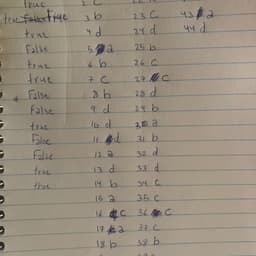 true 2 C
true 3 b 23 C 43 a
true 4 d 24 d 44 d
False 5 a 25 b
true 6 b 26 C
true 7 C 27 C
False 8 b 28 d
False 9 d 29 b
true 10 d 30 a
False 11 d 31 b
False 12 a 32 d
true 13 d 33 d
true 14 b 34 C
15 a 35 C
16 C 36 C
17 a 37 C
18 b 38 b